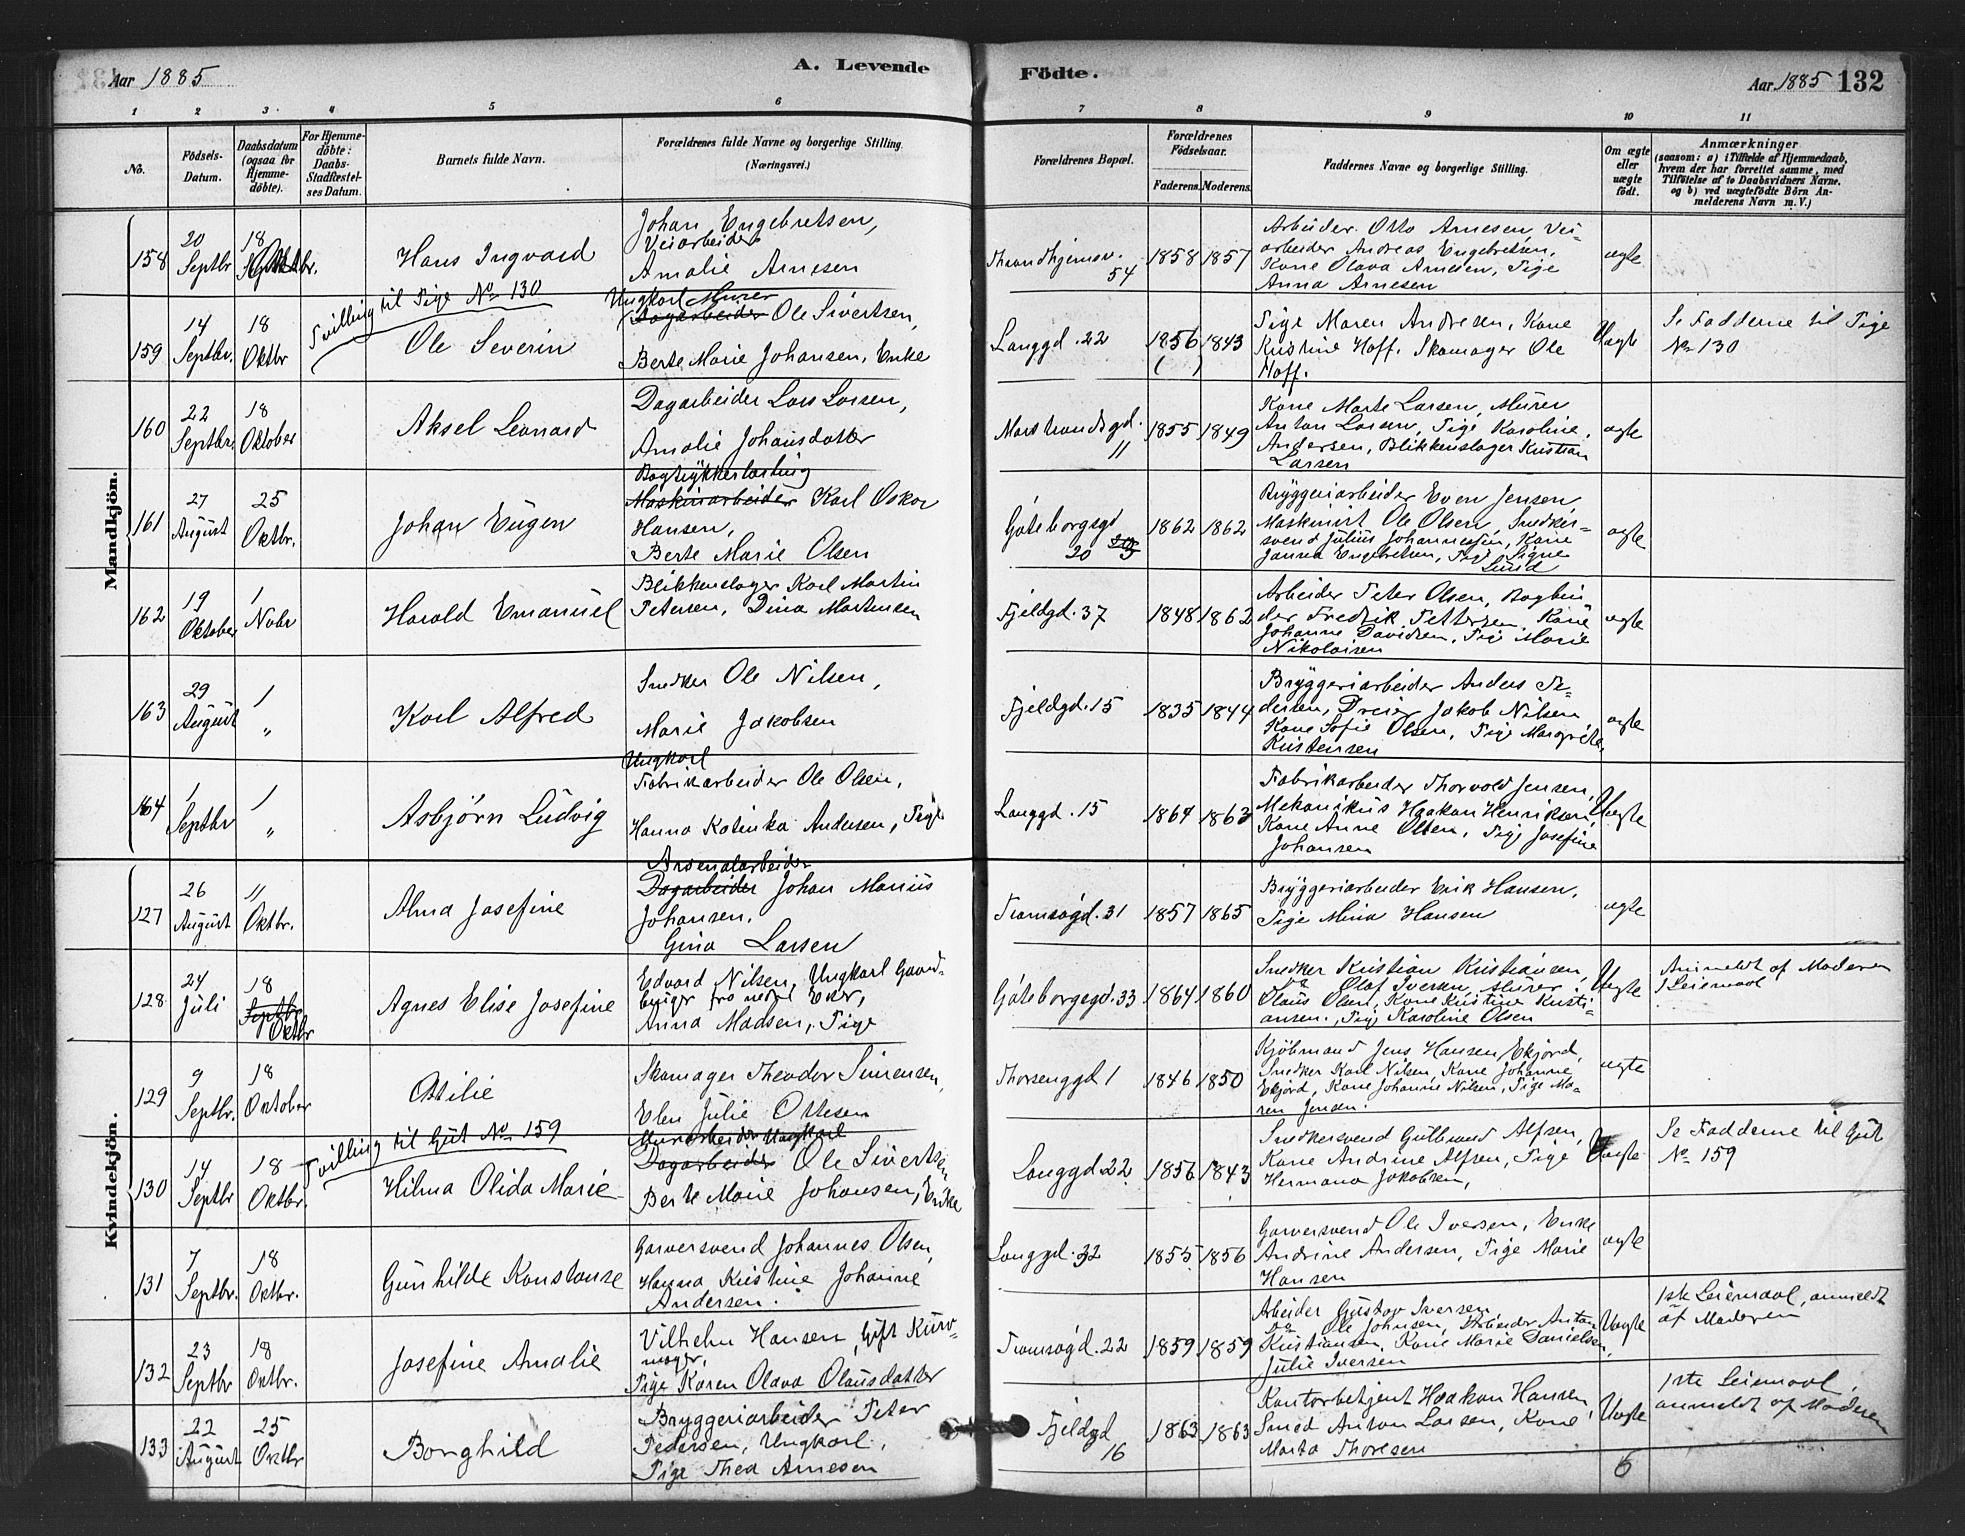 Aar 1885
A. Levende
Födte.
Aar 1885 132
1 2 3 4 5 6 7 8 9 10 11
No.
Födsels-
Datum.
Daabsdatum
(ogsaa for
Hjemme-
döbte).
For Hjemme-
döbte:
Daabs-
Stadfæstel-
ses Datum.
Barnets fulde Navn.
Forældrenes fulde Navne og borgerlige Stilling.
(Næringsvei.)
Forældrenes Bopæl.
Forældrenes
Födselsaar.
Faderens. Moderens.
Faddernes Navne og borgerlige Stilling.
Om ægte
eller
uægte
födt.
Anmærkninger
(saasom: a) i Tilfælde af Hjemmedaab,
hvem der har forrettet samme, med
Tilföielse af to Daabsvidners Navne,
og b) ved uægtefödte Börn An-
melderens Navn m. V.)
Mandkjön.
158
20
Septbr
18
Oktbr.
Hans Ingvard
Johan Engebretsen,
Veiarbeider
Amalie Arnesen
Throndhjemsv.
54
1858 1857
Arbeider Otto Arnesen, Vei-
arbeider Andreas Engebretsen,
Kone Olava Arnesen, Pige
Anna Arnesen
ægte
159
14
Septbr.
18
Oktbr
Tvilling til Pige No 130
Ole Severin
Ungkarl Murer
Dagarbeider Ole Sivertsen,
Berte Marie Johansen, Enke
Langgd. 22
1856 1843
Pige Maren Andresen, Kone
Kristine Hoff. Skomager Ole
Hoff.
Uægte
Se Fadderne til Pige
No 130
160
22
Septbr.
18
Oktober
Aksel Leonard
Dagarbeider Lars Larsen,
Amalie Johansdatter
Markveiensgd.
11
1855 1849
Kone Marte Larsen, Murer
Anton Larsen, Pige Karoline
Andersen, Blikkenslager Kristian
Larsen
ægte
161
27
August
25
Oktbr.
Johan Eugen
Bogtrykkerlærling
Maskinarbeider Karl Oskar
Hansen,
Berte Marie Olsen
Göteborgsgd
20
1862 1862
Bryggeriarbeider Even Jensen
Maskinist Ole Olsen, Snedker-
svend Julius Johannessen, Kone
Janna Engebretsen, Pige Signe
Lund
ægte
162
19
Oktober
1
Novbr
Harald Emanuel
Blikkenslager Karl Martin
Petersen, Dina Mortensen
Fjeldgd. 37
1848 1862
Arbeider Peter Olsen, Bogbin
der Fredrik Pettersen, Kone
Johanne Davidsen, Pig Marie
Nikolaisen
ægte
163
29
August
1
"
Karl Alfred
Snedker Ole Nilsen,
Marie Jakobsen
Fjeldgd. 15
1835 1844
Bryggeriarbeider Anders Pe-
dersen, Dreier Jakob Nilsen
Kone Sofie Olsen, Pige Margrete
Kristensen
ægte
164
1
Septbr
1
"
Asbjørn Ludvig
Ungkarl
Fabrikarbeider Ole Olsen,
Hanna Katinka Andersen, Pige
Langgd. 15
1864 1863
Fabrikarbeider Thorvald Jensen,
Mekanikus Haakon Henriksen,
Kone Anne Olsen, Pige Josefine
Johansen
Uægte
Kvindekjön.
127
26
August
11
Oktbr.
Alma Josefine
Arsenalarbeider
Dagarbeider Johan Marius
Johansen.
Gina Larsen
Tromsøgd. 31
1857 1865
Bryggeriarbeider Erik Hansen,
Pige Mina Hansen
ægte
128
24
Juli
18
Septbr
Oktbr
Agnes Elise Josefine
Edvard Nilsen, Ungkarl Gaard-
bruger fra nedre Eker,
Anna Madsen, Pige
Göteborgsgd. 33
1864 1860
Snedker Kristian Kristiansen,
do Olaf Iversen, Murer
Olaus Olsen, Kone Kristine Kristi-
ansen., Pig Karoline Olsen
Uægte
Anmeldt af Moderen
1 Leiemaal
129
9
Septbr.
18
Oktober
Otilie
Skomager Theodor Simensen,
Elen Julie Ottesen
Thorsenggd 1
1846 1850
Kjøbmand Jens Hansen Ekjord,
Snedker Karl Nilsen, Kone Johanne
Ekjord, Kone Johanne Nilsen, Pige Ma-
ren Jensen.
ægte
130
14
Septbr
18
Oktbr.
Tvilling til Gut No 159
Hilma Olida Marie
Murarbeider Ungkarl
Dagarbeider Ole Sivertsen
Berte Marie Johansen, Enke
Langgd. 22
1856 1843
Snedkersvend Gulbrand Alfsen,
Kone Andrine Alfsen, Pige
Hermana Jakobsen,
Uægte
Se Fadderne til Gut
No 159
131
7
Septbr.
18
Oktbr.
Gunhilde Konstanse
Garversvend Johannes Olsen,
Hanna Kristine Johanne
Andersen.
Langgd. 32
1855 1856
Garversvend Ole Iversen, Enke
Andrine Andersen, Pige Marie
Hansen
ægte
132
23
Septbr
18
Oktbr.
Josefine Amalie
Vilhelm Hansen, Gift Kurv-
mager,
Pige Karen Olava Olausdatter
Tromsøgd. 22
1859 1859
Arbeider Gustav Iversen,
do Ole Johnsen, Arbeider Anton
Kristiansen, Kone Marie Danielsen,
Julie Iversen
Uægte
1ste Leiemaal, anmeldt
af Moderen
133
22
August
25
Oktbr
Borghild
Bryggeriarbeider Peter
Pedersen, Ungkarl,
Pige Thea Arnesen
Fjeldgd
16
1863 1863
Kontorbetjent Haakon Hansen,
Smed Anton Larsen, Kone
Marta Thoresen
Uægte
1ste Leiemaal,
anmeldt af Moderen
6